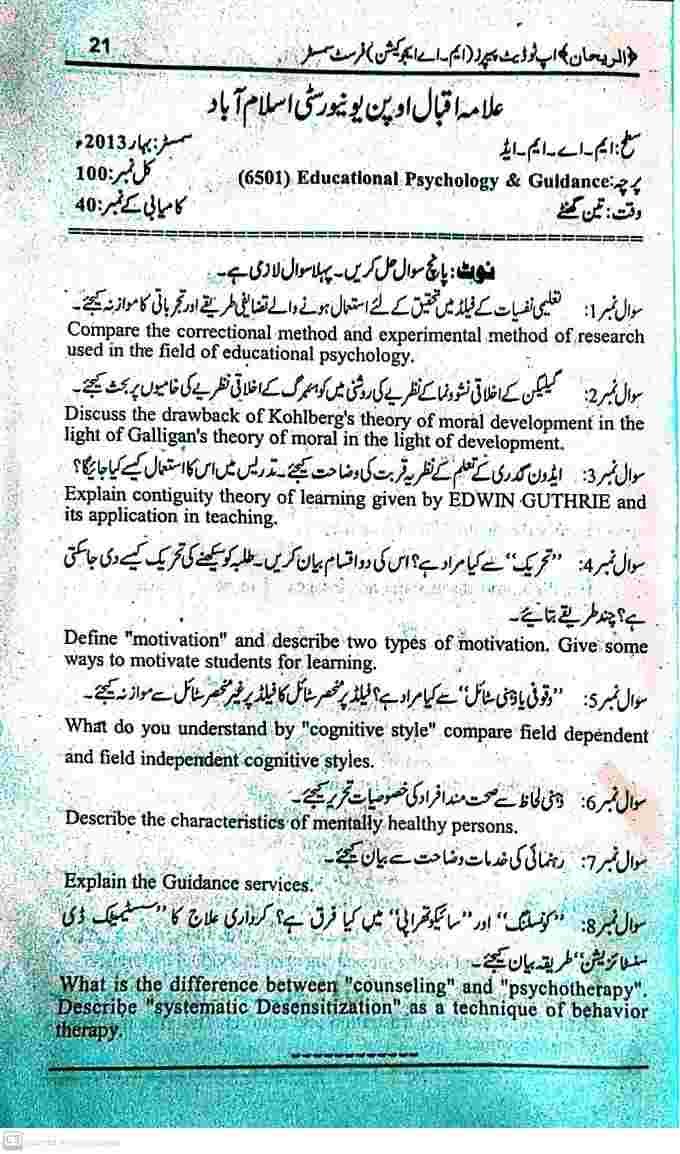 ﴿الریحان﴾ اپ ٹو ڈیٹ پیپرز (ایم۔اے ایجوکیشن) فرسٹ سمسٹر 21
علامہ اقبال اوپن یونیورسٹی اسلام آباد
سطح: ایم۔اے۔ایم۔ایڈ سمسٹر: بہار 2013ء
پرچہ: Educational Psychology & Guidance (6501) کل نمبر: 100
وقت: تین گھنٹے کامیابی کے نمبر: 40
نوٹ: پانچ سوال حل کریں۔ پہلا سوال لازمی ہے۔
سوال نمبر 1: تعلیمی نفسیات کے فیلڈ میں تحقیق کے لئے استعمال ہونے والے تضایفی طریقے اور تجرباتی کا موازنہ کیجئے۔
Compare the correctional method and experimental method of research
used in the field of educational psychology.
سوال نمبر 2: گیلیگن کے اخلاقی نشوونما کے نظریے کی روشنی میں کوہلبرگ کے اخلاقی نظریے کی خامیوں پر بحث کیجئے۔
Discuss the drawback of Kohlberg's theory of moral development in the
light of Galligan's theory of moral in the light of development.
سوال نمبر 3: ایڈون گتھری کے تعلم کے نظریہ قربت کی وضاحت کیجئے۔ تدریس میں اس کا استعمال کیسے کیا جائیگا؟
Explain contiguity theory of learning given by EDWIN GUTHRIE and
its application in teaching.
سوال نمبر 4: ”تحریک“ سے کیا مراد ہے؟ اس کی دو اقسام بیان کریں۔ طلبہ کو سیکھنے کی تحریک کیسے دی جاسکتی
ہے؟ چند طریقے بتائیے۔
Define "motivation" and describe two types of motivation. Give some
ways to motivate students for learning.
سوال نمبر 5: ”وقوفی یا ذہنی سٹائل“ سے کیا مراد ہے؟ فیلڈ پر منحصر سٹائل کا فیلڈ پر غیر منحصر سٹائل سے موازنہ کیجئے۔
What do you understand by "cognitive style" compare field dependent
and field independent cognitive styles.
سوال نمبر 6: ذہنی لحاظ سے صحت مند افراد کی خصوصیات تحریر کیجئے۔
Describe the characteristics of mentally healthy persons.
سوال نمبر 7: رہنمائی کی خدمات وضاحت سے بیان کیجئے۔
Explain the Guidance services.
سوال نمبر 8: ”کونسلنگ“ اور ”سائیکوتھراپی“ میں کیا فرق ہے؟ کرداری علاج کا ”سسٹیمیٹک ڈی
سنسٹائزیشن“ طریقہ بیان کیجئے۔
What is the difference between "counseling" and "psychotherapy".
Describe "systematic Desensitization" as a technique of behavior
therapy.
CS